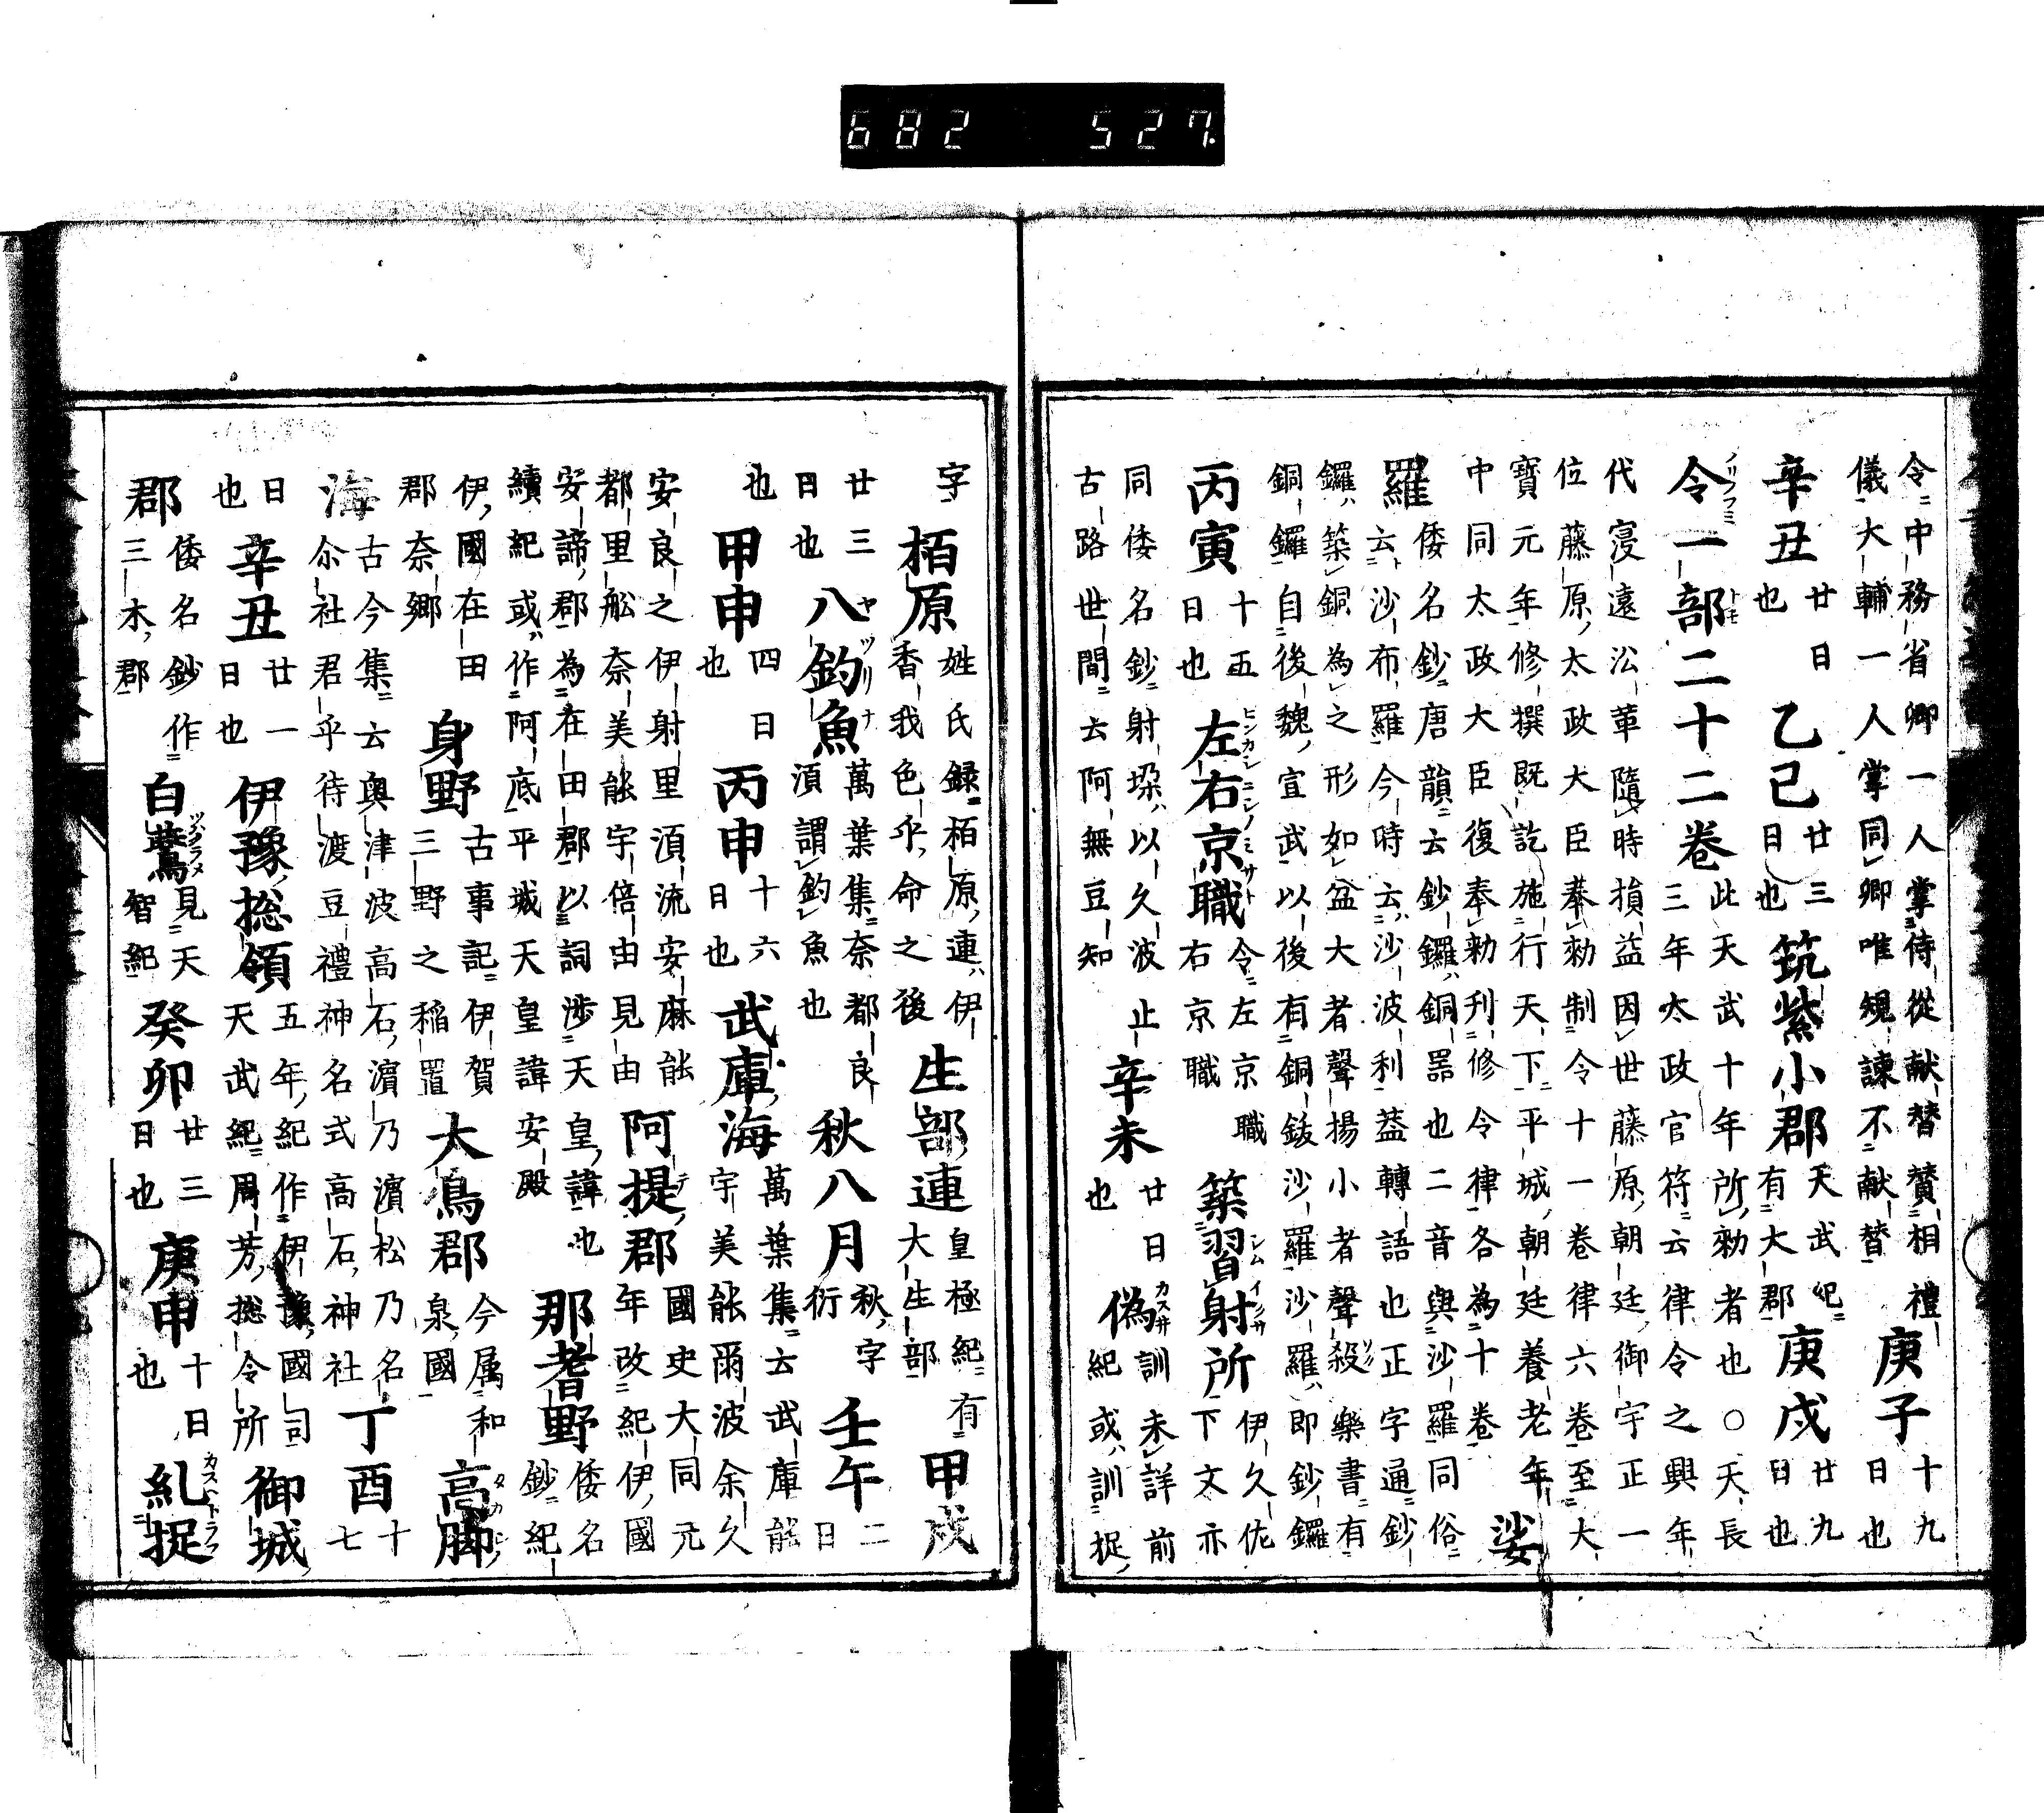 682 527
令中務省卿一人掌侍從献替賛相禮
儀大輔一人掌同卿唯規諫不献替
庚子
十九
日也
辛丑
廿日
也
乙巳
廿三
日也
筑紫小郡
天武紀
有大郡
庚戌
廿九
日也
令一部二十二卷
此天武十年所勑者也○天長
三年太政官符云律令之興年
代寖遠沿革隨時損益因世藤原朝廷御宇正一
位藤原太政大臣奉勑制令十一卷律六卷至大
寳元年修撰既訖施行天下平城朝廷養老年
中同太政大臣復奉勑刋修令律各為十卷
娑
羅
倭名鈔唐韻云鈔鑼銅噐也二音與沙羅同俗
云沙布羅今時云沙波利葢轉語也正字通鈔
鑼築銅為之形如盆大者聲揚小者聲殺樂書有
銅鑼自後魏宣武以後有銅鈸沙羅沙羅即鈔鑼
丙寅
十五
日也
左右京職
令左京職
右京職
築習射所
伊久佐
下文亦
同倭名鈔射垜以久波止
古路世間云阿無豆知
辛未
廿日
也
偽
訓未詳前
紀或訓捉
字
栢原
姓氏録栢原連伊
香我色乎命之後
生部連
皇極紀有
大生部
甲戌
廿三
日也
八釣魚
萬葉集奈都良
湏謂釣魚也
秋八月
秋字
衍
壬午
二
日
也
甲申
四日
也
丙申
十六
日也
武庫海
萬葉集云武庫能
宇美能爾波余久
安良之伊射里湏流安麻能
都里舩奈美能宇倍由見由
阿提郡
國史大同元
年改紀伊國
安諦郡為在田郡以詞渉天皇諱也
續紀或作阿底平城天皇諱安殿
那耆野
倭名
鈔紀
伊國在田
郡奈郷
身野
古事記伊賀
三野之稲置
大鳥郡
今属和
泉國
高脚
海
古今集云奥津波高石濵乃濵松乃名
尒社君乎待渡豆禮神名式高石神社
丁酉
十
七
日
也
辛丑
廿一
日也
伊豫総領
五年紀作伊豫國司
天武紀周芳総令所
御城
郡
倭名鈔作
三木郡
白鷰
見天
智紀
癸卯
廿三
日也
庚申
十日
也
糺捉